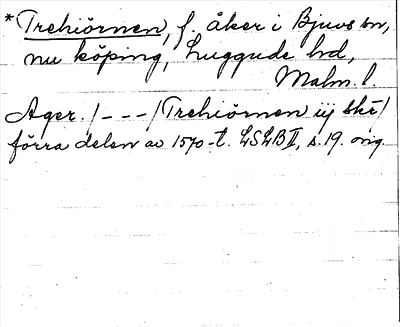 * Trehiörnen, f. åker i Bjuvs sn,
nu köping, Luggude hd,
Malm. l.
Ager. /---/ Trehiörnen iij skr /
förra delen av 1570-t. LSLB II, s. 19. orig.